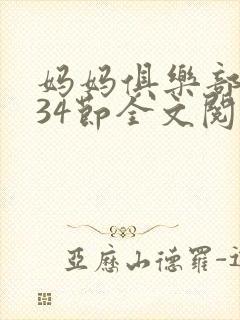 妈妈俱樂部
34節全文閱
亞歷山德羅-迈